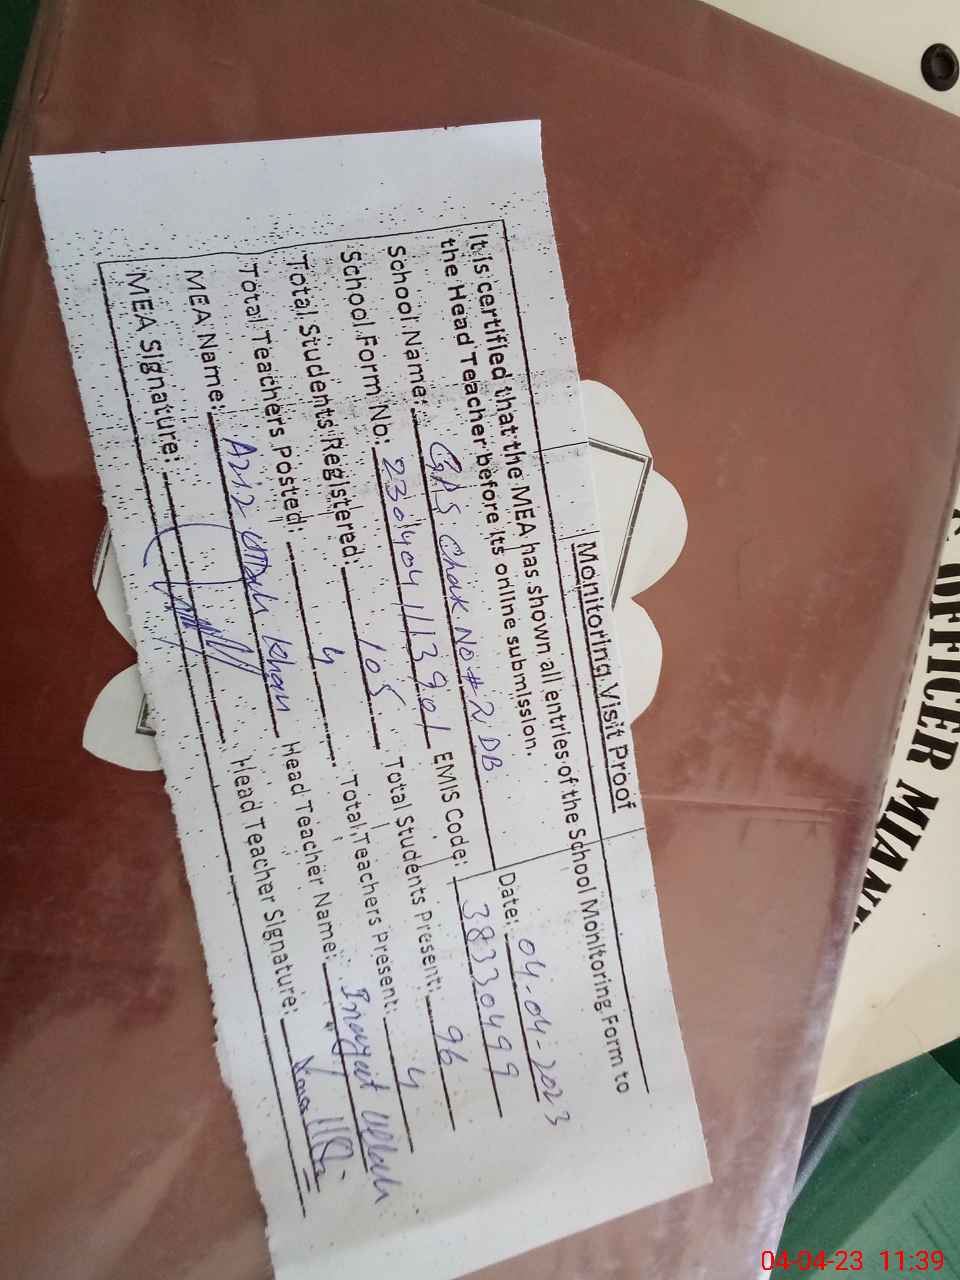 Monitoring Visit Proof
It is certified that the MEA has shown all entries of the School Monitoring Form to
the Head Teacher before its online submission.
Date: 04-04-2023
School Name: GPS Chak No # 2 DB
School Form No: 2304041113901 EMIS Code: 38330499
Total Students Registered: 105 Total Students Present: 96
Total Teachers Posted: 4 Total Teachers Present: 4
MEA Name: Aziz Ullah Khan Head Teacher Name: Inayat Ullah
MEA Signature: Head Teacher Signature:
OFFICER MIAN
04-04-23 11:39